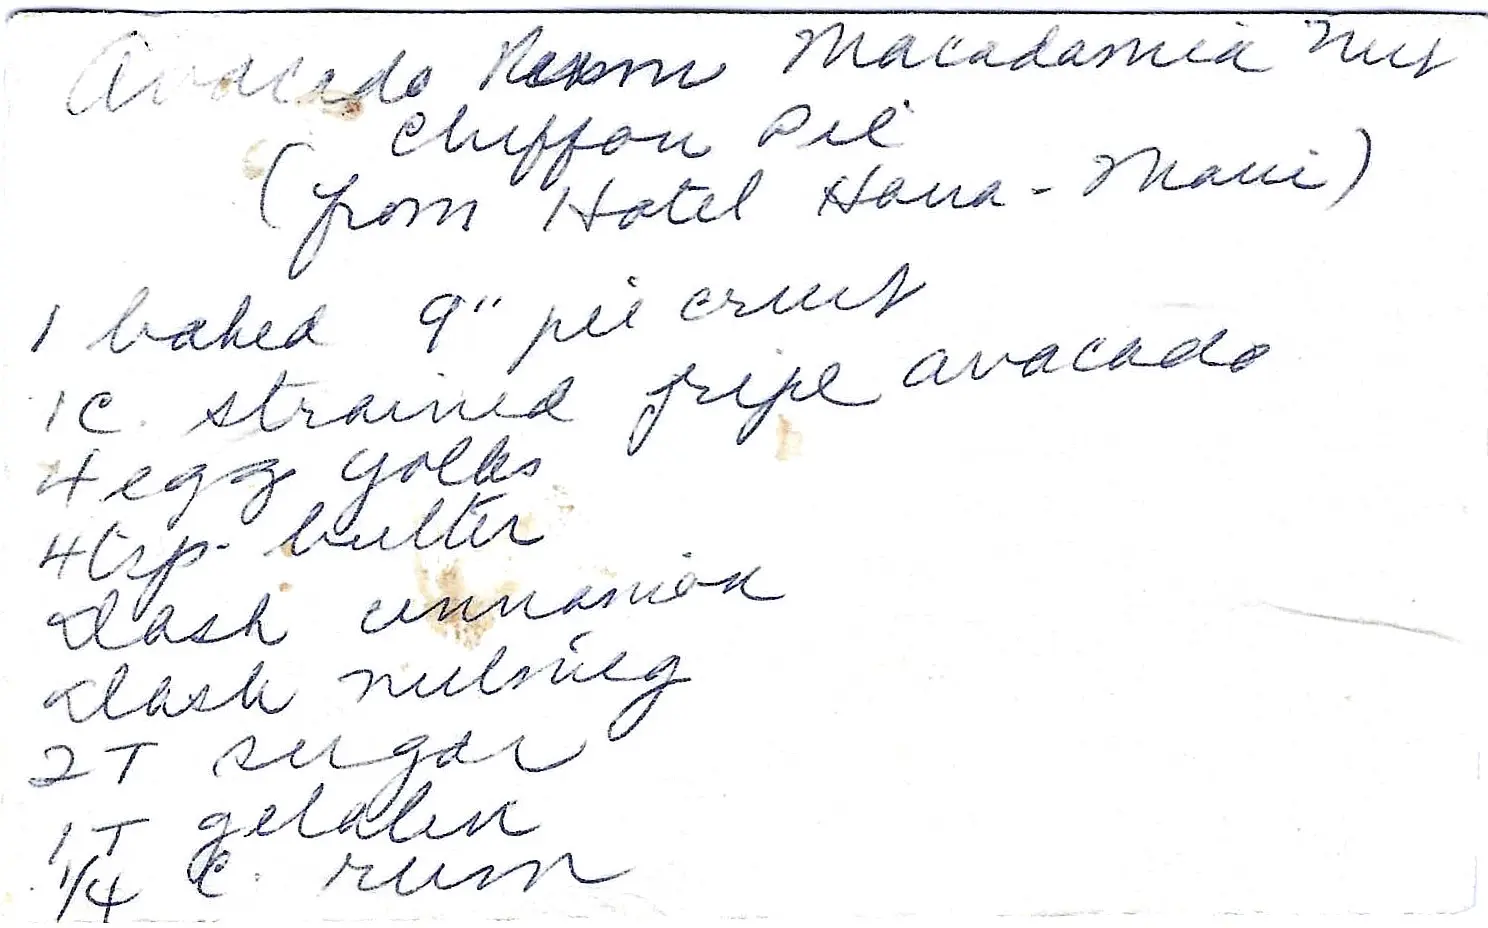 Avocado Rum Macadamia Nut
Chiffon Pie
(from Hotel Hana-Maui)
1 baked 9" pie crust
1 C. strained ripe avacado
4 egg yolks
4 tsp. butter
Dash cinnamon
Dash nutmeg
2 T sugar
1 T gelatin
1/4 c. rum